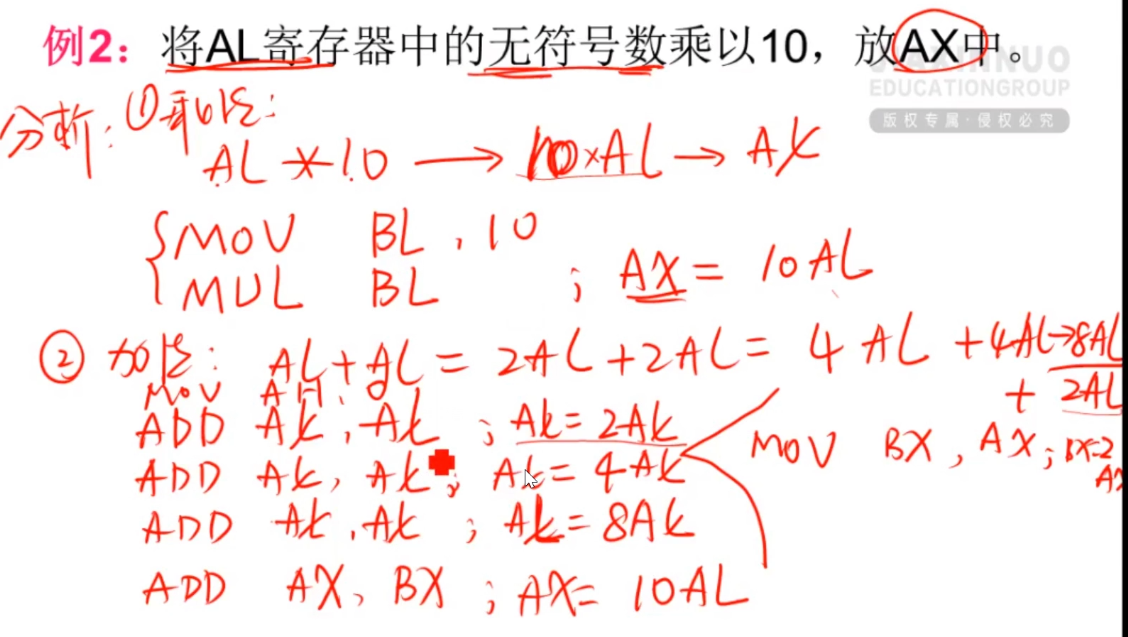 例2：将AL寄存器中的无符号数乘以10，放AX中。
JIAXINNUO
EDUCATIONGROUP
版权专属·侵权必究
分析：①乘法：
AL * 10 → 10×AL → AX
MOV BL , 10
MUL BL ; AX = 10AL
② 加法： AL+AL = 2AL+2AL = 4AL +4AL→8AL
+ 2AL
MOV AH, 0
ADD AX, AX ; AX = 2AX
MOV BX, AX ; BX=2AX
ADD AX, AX ; AX = 4AX
ADD AX, AX ; AX = 8AX
ADD AX, BX ; AX = 10AL